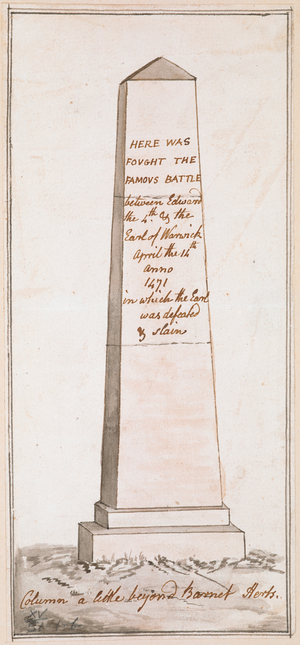 HERE WAS
FOVGHT THE
FAMOVS BATTLE
between Edward
the 4th. & the
Earl of Warwick
April the 14th
anno
1471
in which the Earl
was defeated
& slain
Column a little beyond Barnet Herts.